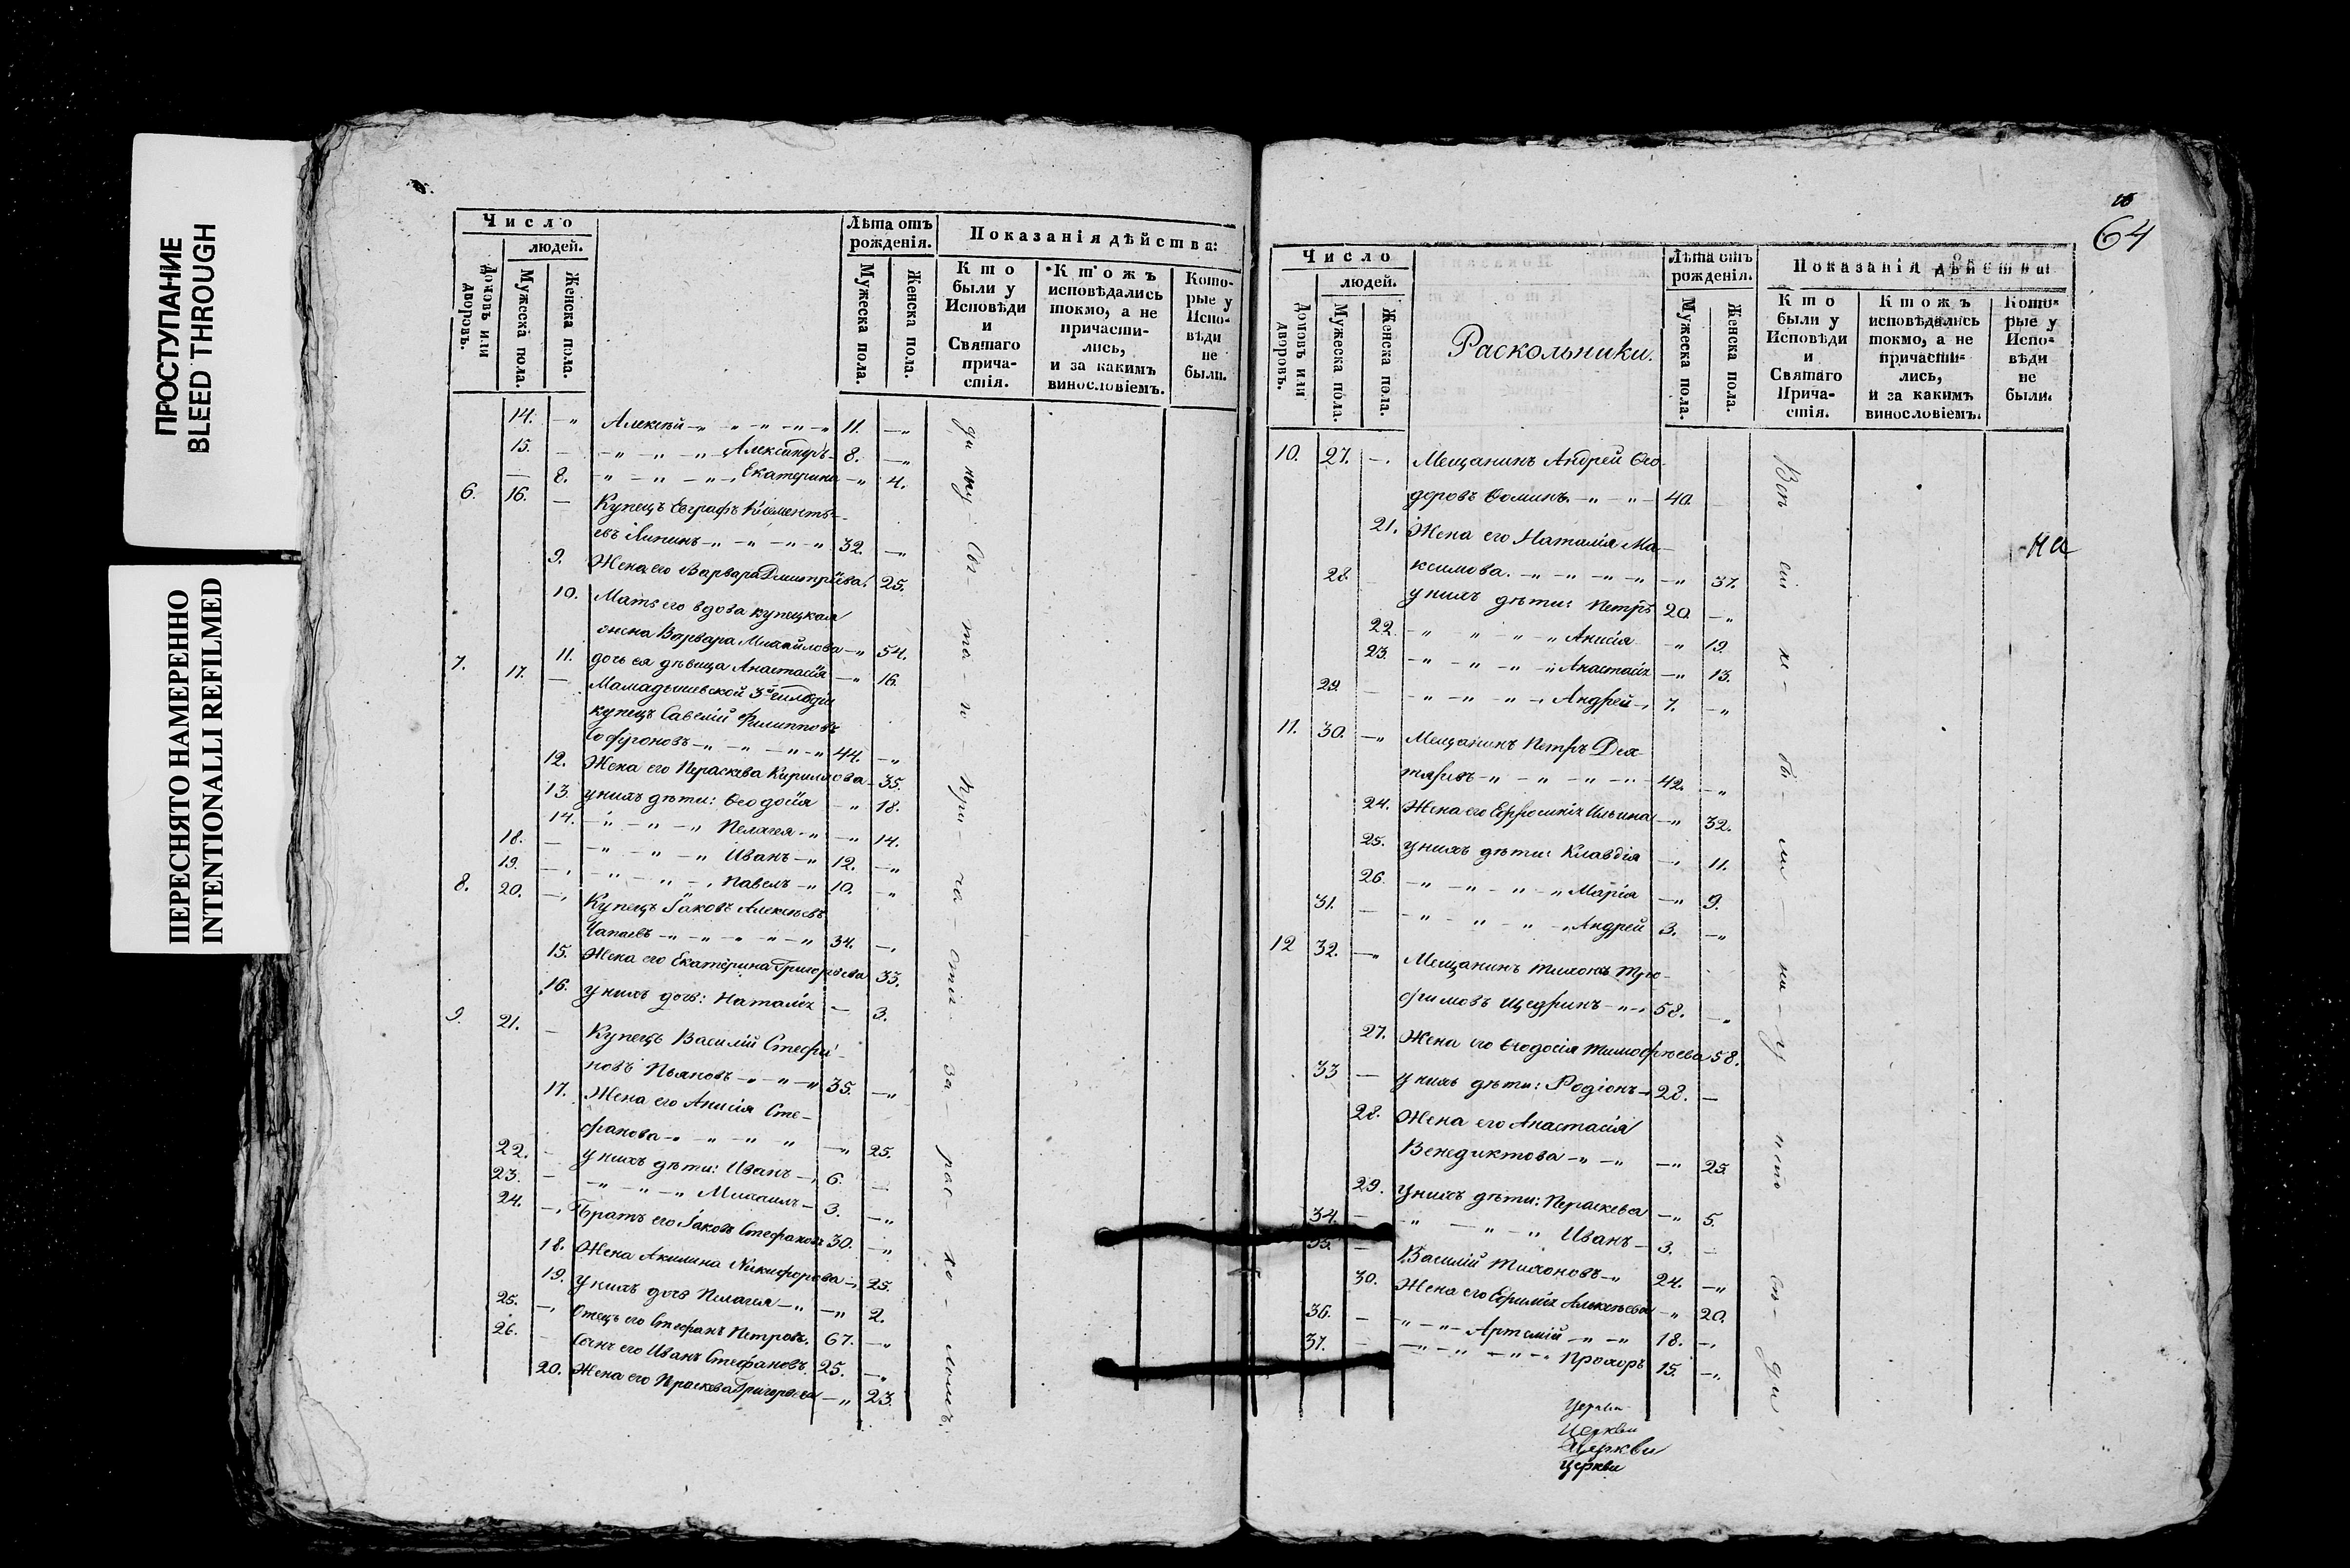 ПРОСТУПАНИЕ
BLEED THROUGH
ПЕРЕСНЯТО НАМЕРЕННО
INTENTIONALLI REFILMED
Число
людей.
Домовъ или дворовъ.
Мужеска пола.
Женска пола.
Лѣта отъ рожденія.
Мужеска пола.
Женска пола.
Показанія дѣйства:
Кто были у Исповѣди и Святаго прича-стія.
Ктожъ исповѣдались токмо, а не причасти-лись, и за какимъ винословіемъ.
Кото-рые у Испо-вѣди не были.
14. —„ Алексѣй —„ —„ —„ —„ 11. —„
15. — —„ —„ —„ Александръ 8. —„
— 8. —„ —„ —„ Екатерина —„ 4.
6. 16. — Купецъ Евграфъ Клементь-
евъ —„ —„ —„ —„ 32. —„
9. Жена его Варвара Дмитріева 25.
10. Мать его вдова купецкая
жена Варвара Михайлова —„ 54.
11. дочь ея дѣвица Анастасія —„ 16.
7. 17. — Мамадышевской 3й гильдіи
купецъ Савелій Филипповъ
Софроновъ —„ —„ —„ 44. —„
12. Жена его Параскева Кириллова 35.
13. у нихъ дѣти: Ѳеодосія —„ 18.
14. —„ —„ —„ Пелагея —„ —„ 14.
18. — —„ —„ —„ Иванъ —„ 12. —„
19. —„ —„ —„ —„ Павелъ —„ 10. —„
8. 20. —„ Купецъ Іаковъ Алексѣевъ
Чапаевъ —„ —„ —„ —„ 34. —„
15. Жена его Екатерина Григорьева 33.
16. у нихъ дочь: Наталія — 3.
9. 21. — Купецъ Василій Стефа-
новъ Пьяновъ —„ —„ —„ 35. —„
17. Жена его Анисія Сте-
фанова —„ —„ —„ —„ —„ 25.
22. — у нихъ дѣти: Иванъ —„ 6. —
23. — —„ —„ —„ Михаилъ — 3. —„
24. —„ Братъ его Іаковъ Стефановъ 30. —„
18. Жена Акилина Никифорова —„ 25.
19. у нихъ дочь Пелагея —„ —„ 2.
25. —„ Отецъ его Стефанъ Петровъ. 67. —„
26. — Сынъ его Иванъ Стефановъ. 25. —„
20. Жена его Параскева Григорьева —„ 23.
при-ча-стія за-рас-ко-ломъ.
64
Число
людей.
Домовъ или дворовъ.
Мужеска пола.
Женска пола.
Раскольники.
Лѣта отъ рожденія.
Мужеска пола.
Женска пола.
Показанія дѣйства
Кто были у Исповѣди и Святаго Прича-стія.
Ктожъ исповѣдались токмо, а не причасти-лись, и за какимъ винословіемъ.
Кото-рые у Испо-вѣди не были.
10. 27. —. Мещанинъ Андрей Ѳео-
доровъ Ѳоминъ —„ —„ 40. —
21. Жена его Наталія Ма-
ксимова. —„ —„ —„ —„ —„ 37.
28. — у нихъ дѣти: Петръ 20. —„
22. —„ —„ —„ Анисія —„ 19.
23. —„ —„ —„ Анастасія —„ 13.
29. — —„ —„ —„ Андрей —„ 7. —„
11. 30. —„ Мещанинъ Петръ Дех-
тяревъ —„ —„ —„ —„ 42. —„
24. Жена его Ефросинія Ильина —„ 32.
25. у нихъ дѣти: Клавдія —„ 11.
26. —„ —„ —„ Марія —„ 9.
31. — —„ —„ —„ Андрей 3. —„
12 32. —„ Мещанинъ Тихонъ Тро-
фимовъ Щедринъ —„ 58. —„
27. Жена его Ѳеодосія Тимофѣева 58.
33 — у нихъ дѣти: Родіонъ — 28. —
28. Жена его Анастасія
Венедиктова —„ —„ —„ 25.
29. У нихъ дѣти: Параскева —„ 5.
34. — —„ —„ —„ Иванъ — 3. —
35. — Василій Тихоновъ —„ 24. —„
30. Жена его Ефимія Алексѣева —„ 20.
36. — —„ —„ Артемій —„ —„ 18. —„
37. — —„ —„ —„ Прохоръ 15. —„
на
Церкви
Церкви
Церкви
Церкви